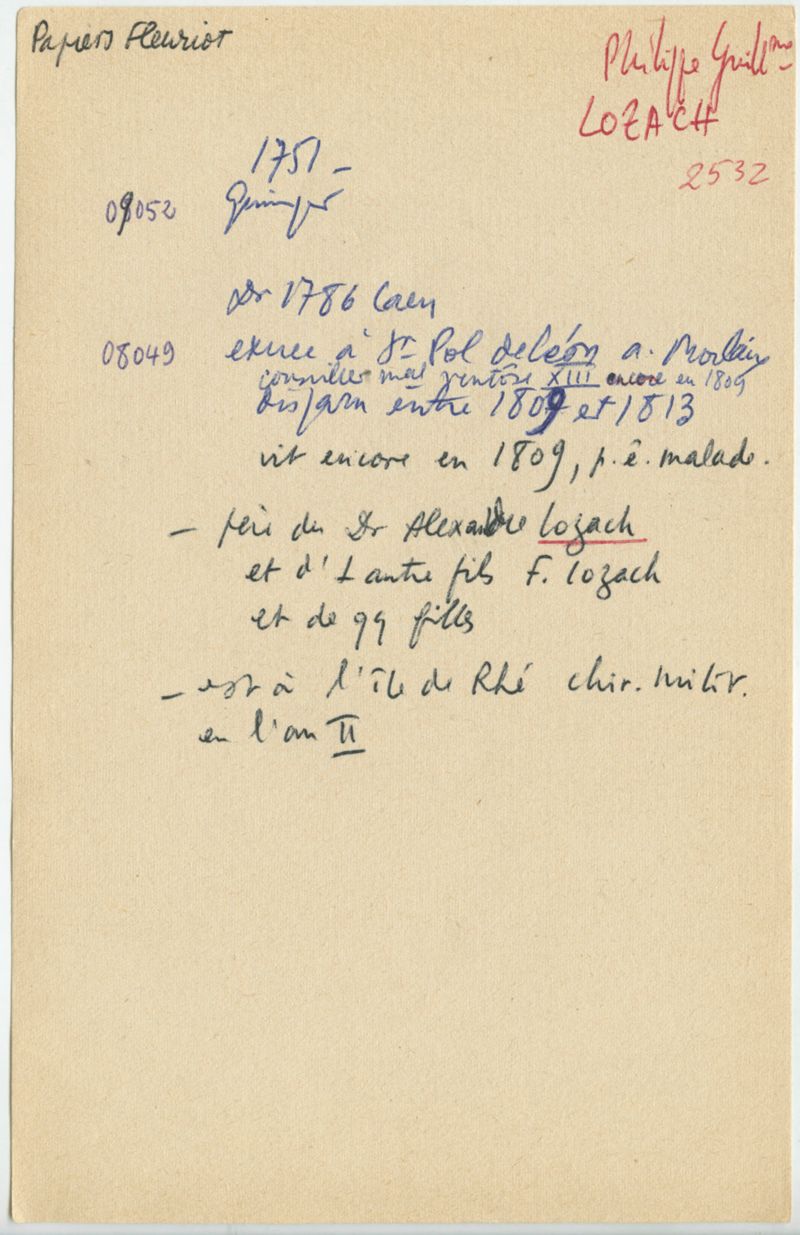 Papiers Fleuriot
Philippe Guillme
LOZACH
2532
1751 -
09052 Quimper
Dr 1786 Caen
08049 exerce à St Pol de Léon a. Morlaix
conseiller mal ventôse XIII encore en 1809
disparu entre 1809 et 1813
vit encore en 1809, p.ê. malade.
- père du Dr Alexandre Lozach
et d'1 autre fils F. Lozach
et de qq filles
- est à l'île de Rhé chir. milit.
en l'an II